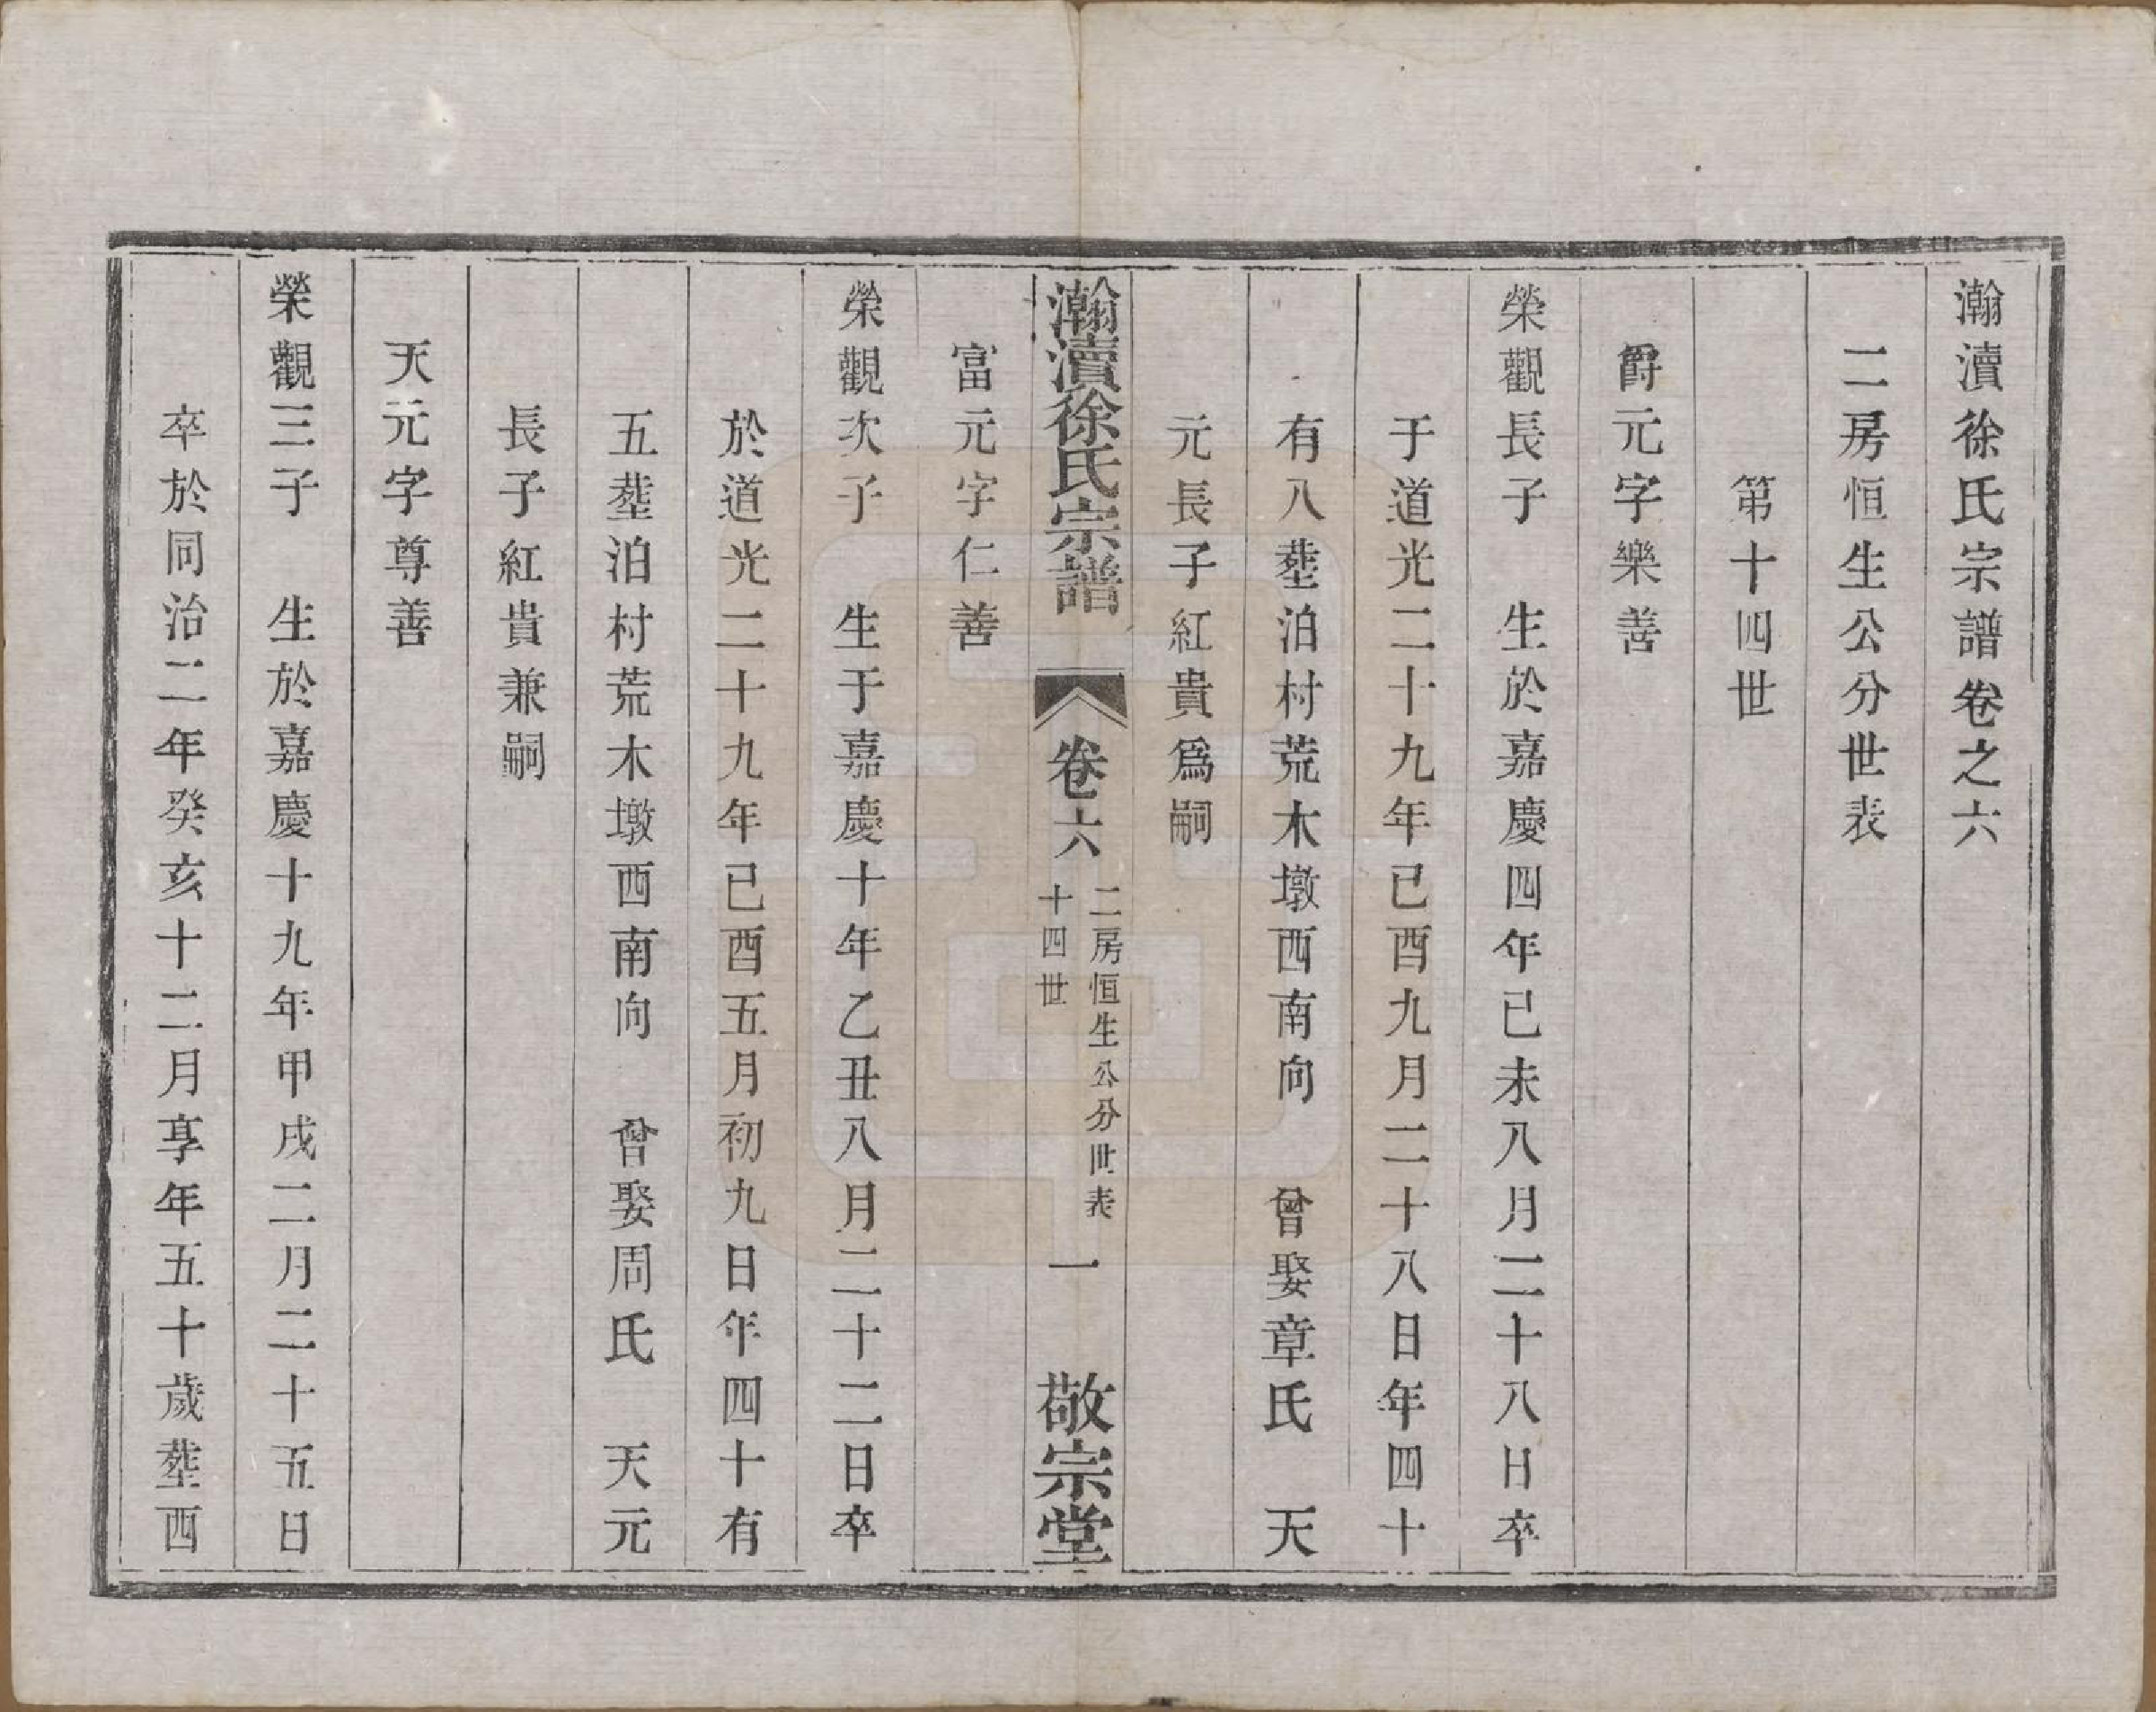 瀚瀆徐氏宗譜卷之六
二房恒生公分世表
第十四世
爵元字樂善
榮觀長子　生於嘉慶四年己未八月二十八日卒
于道光二十九年己酉九月二十八日年四十
有八塟泊村荒木墩西南向　曾娶章氏　天
元長子紅貴爲嗣
瀚瀆徐氏宗譜　卷六　二房恒生公分世表　十四世　一　敬宗堂
富元字仁善
榮觀次子　生于嘉慶十年乙丑八月二十二日卒
於道光二十九年己酉五月初九日年四十有
五塟泊村荒木墩西南向　曾娶周氏　天元
長子紅貴兼嗣
天元字尊善
榮觀三子　生於嘉慶十九年甲戌二月二十五日
卒於同治二年癸亥十二月享年五十歲塟西